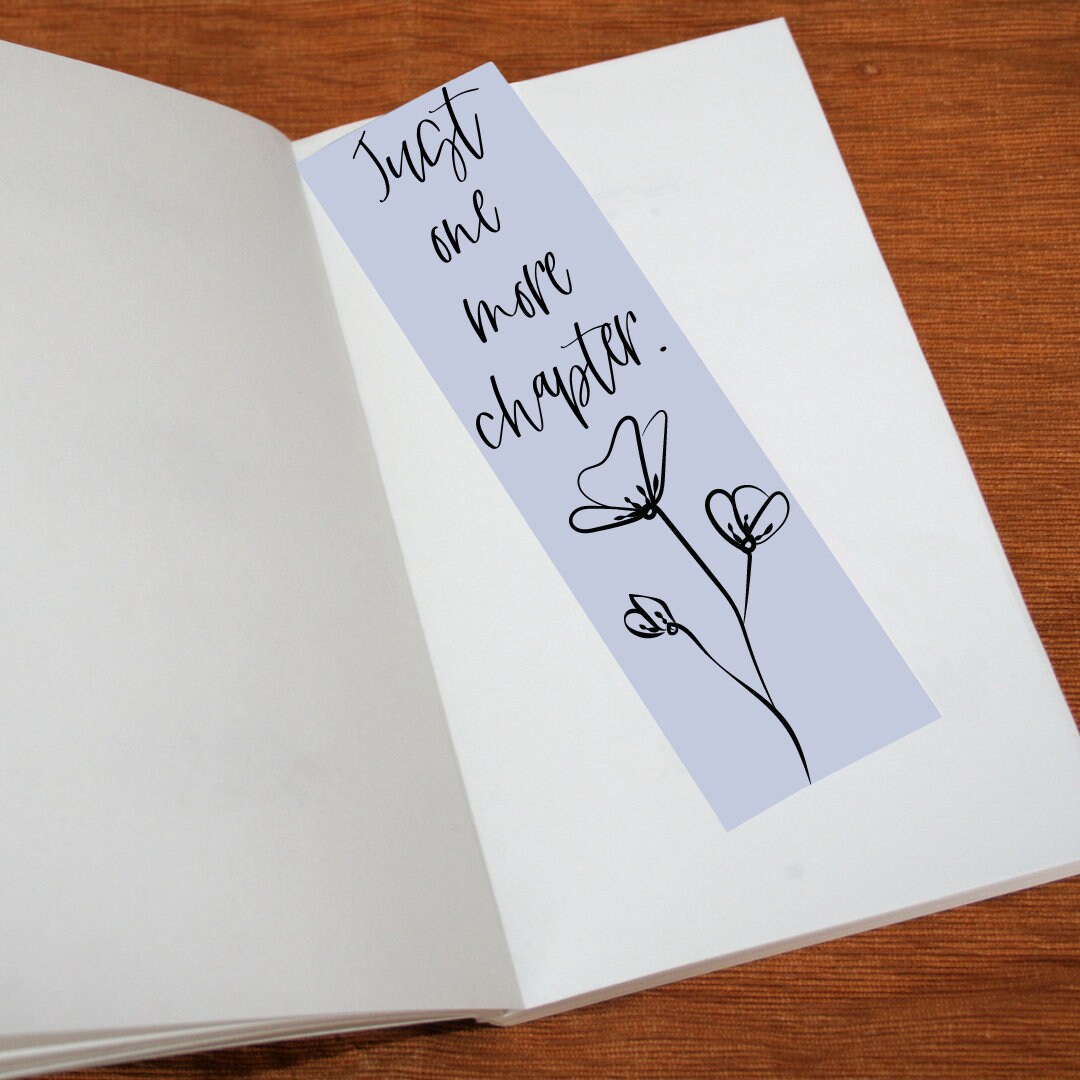 Just
one
more
chapter.